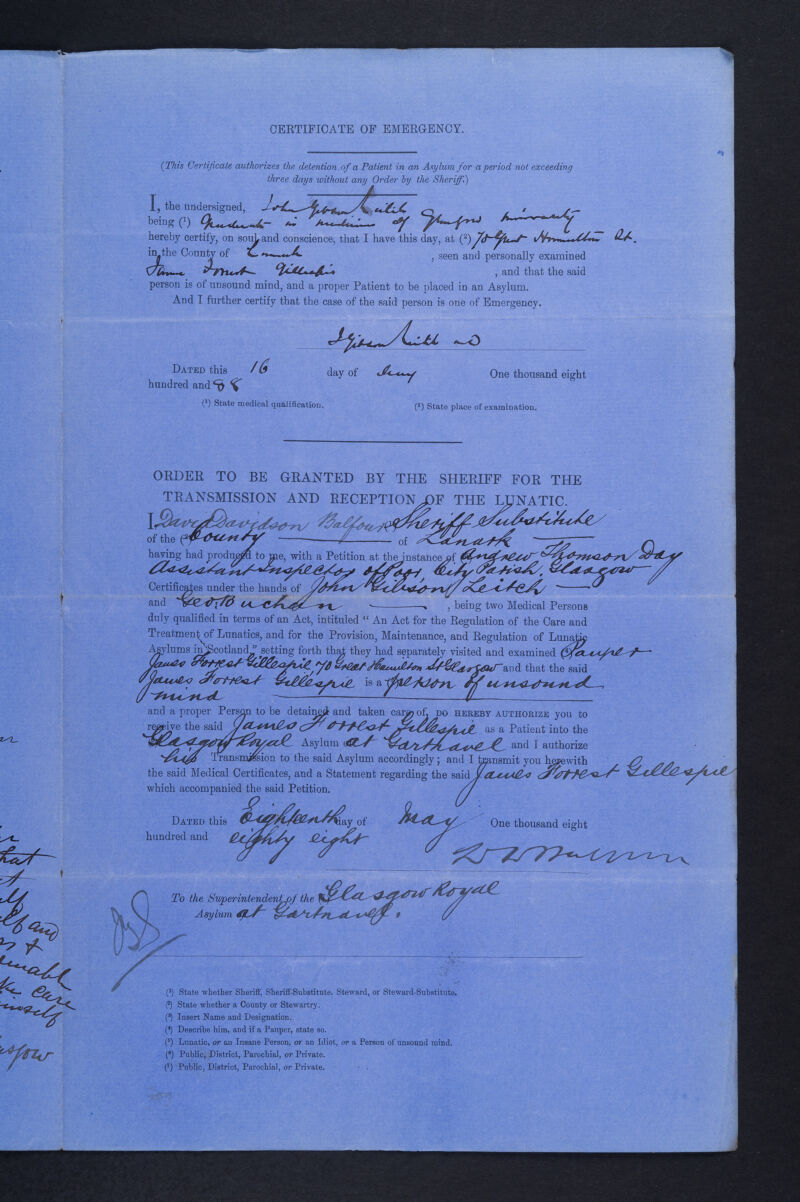 CERTIFICATE OF EMERGENCY.
(This Certificate authorizes the detention of a Patient in an Asylum for a period not exceeding
three days without any Order by the Sheriff.)
I, the undersigned, John Gibson Leitch
being (¹) Graduate in medicine of Glasgow University
hereby certify, on soul and conscience, that I have this day, at (²) 70 Great Hamilton St.
in the County of Lanark , seen and personally examined
James Forrest Gillespie , and that the said
person is of unsound mind, and a proper Patient to be placed in an Asylum.
And I further certify that the case of the said person is one of Emergency.
J Gibson Leitch MD
DATED this 16 day of May One thousand eight
hundred and 88
(¹) State medical qualification. (²) State place of examination.
ORDER TO BE GRANTED BY THE SHERIFF FOR THE
TRANSMISSION AND RECEPTION OF THE LUNATIC.
I David Davidson Balfour Sheriff Substitute
of the County of Lanark
having had produced to me, with a Petition at the instance of Andrew Thomson Day
Assistant Inspector of Poor, City Parish, Glasgow
Certificates under the hands of John Gibson Leitch
and Geo. Buchan , being two Medical Persons
duly qualified in terms of an Act, intituled "An Act for the Regulation of the Care and
Treatment of Lunatics, and for the Provision, Maintenance, and Regulation of Lunatic
Asylums in Scotland," setting forth that they had separately visited and examined Pauper
James Forrest Gillespie, 70 Great Hamilton St Glasgow and that the said
James Forrest Gillespie is a person of unsound
mind
and a proper Person to be detained and taken care of, DO HEREBY AUTHORIZE you to
receive the said James Forrest Gillespie as a Patient into the
Glasgow Royal Asylum at Gartnavel and I authorize
his Transmission to the said Asylum accordingly; and I transmit you herewith
the said Medical Certificates, and a Statement regarding the said James Forrest Gillespie
which accompanied the said Petition.
DATED this Eighteenth day of May One thousand eight
hundred and eighty eight
To the Superintendent of the Glasgow Royal
Asylum at Gartnavel.
(¹) State whether Sheriff, Sheriff-Substitute, Steward, or Steward-Substitute.
(²) State whether a County or Stewartry.
(³) Insert Name and Designation.
(⁴) Describe him, and if a Pauper, state so.
(⁵) Lunatic, or an Insane Person, or an Idiot, or a Person of unsound mind.
(⁶) Public, District, Parochial, or Private.
(⁷) Public, District, Parochial, or Private.